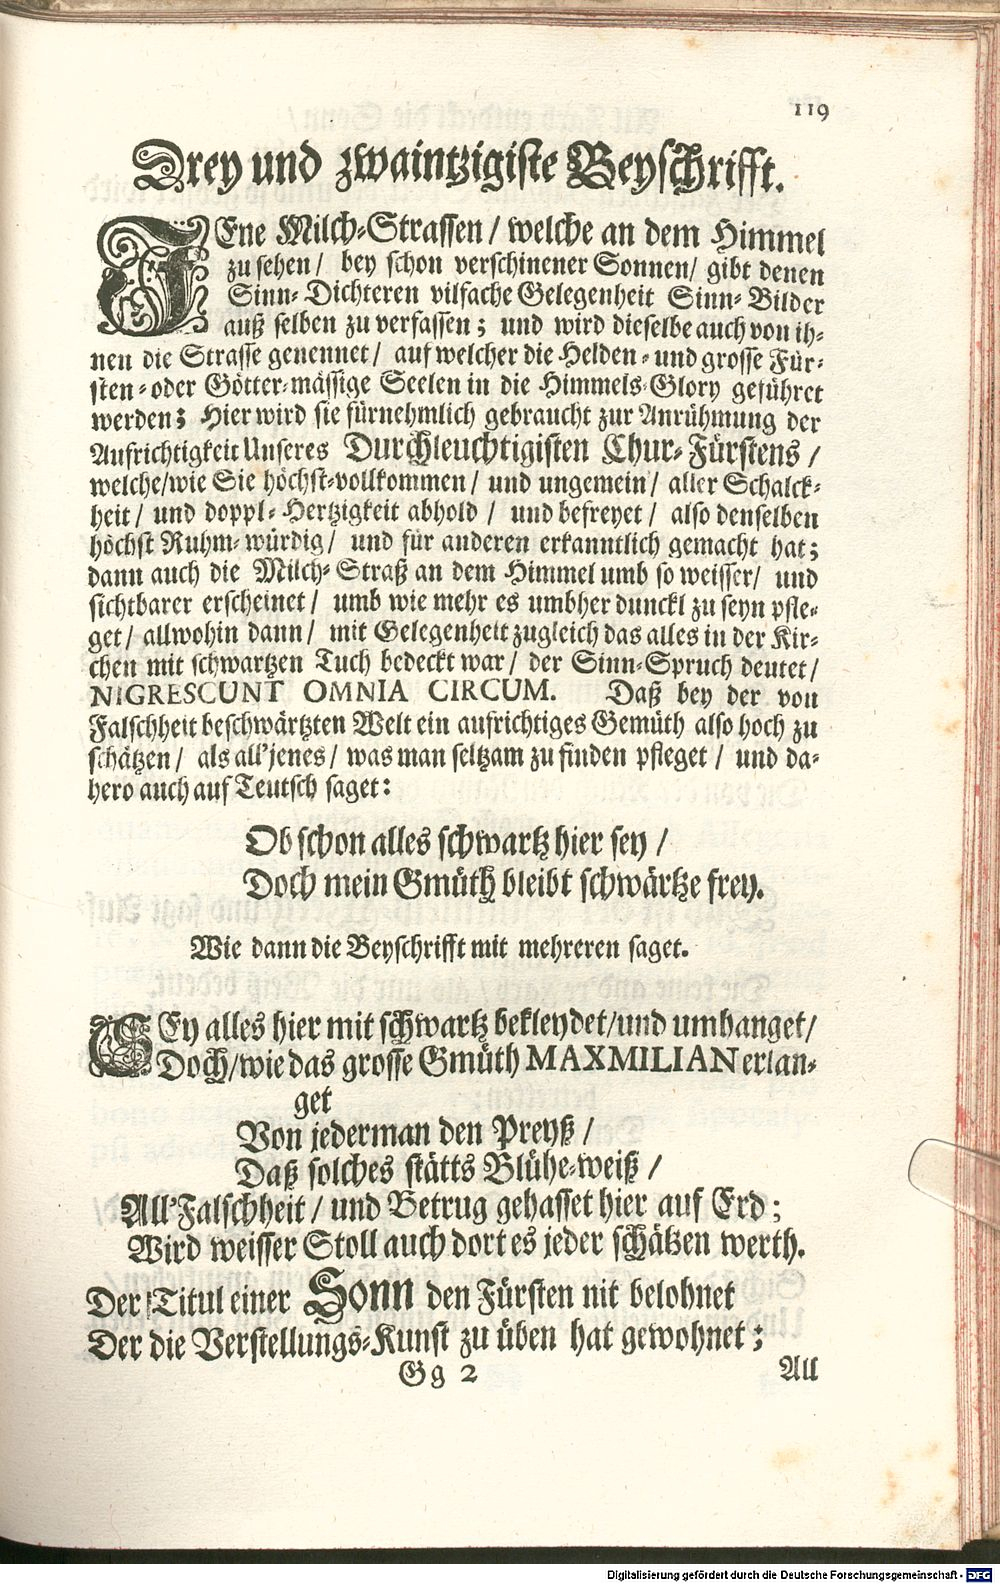 119
Drey und zwaintzigiste Beyschrifft.
JEne Milch-Strassen / welche an dem Himmel
zu sehen / bey schon verschinener Sonnen / gibt denen
Sinn-Dichteren vilfache Gelegenheit Sinn-Bilder
auß selben zu verfassen ; und wird dieselbe auch von ih-
nen die Strasse genennet / auf welcher die Helden- und grosse Für-
sten- oder Götter-mässige Seelen in die Himmels-Glory geführet
werden ; Hier wird sie fürnehmlich gebraucht zur Anrühmung der
Aufrichtigkeit Unseres Durchleuchtigisten Chur-Fürstens /
welche / wie Sie höchst-vollkommen / und ungemein / aller Schalck-
heit / und doppl-Hertzigkeit abhold / und befreyet / also denselben
höchst Ruhm-würdig / und für anderen erkanntlich gemacht hat ;
dann auch die Milch-Straß an dem Himmel umb so weisser / und
sichtbarer erscheinet / umb wie mehr es umbher dunckl zu seyn pfle-
get / allwohin dann / mit Gelegenheit zugleich das alles in der Kir-
chen mit schwartzen Tuch bedeckt war / der Sinn-Spruch deutet /
NIGRESCUNT OMNIA CIRCUM. Daß bey der von
Falschheit beschwärtzten Welt ein aufrichtiges Gemüth also hoch zu
schätzen / als all'jenes / was man seltzam zu finden pfleget / und da-
hero auch auf Teutsch saget :
Ob schon alles schwartz hier sey /
Doch mein Gmüth bleibt schwärtze frey.
Wie dann die Beyschrifft mit mehreren saget.
SEy alles hier mit schwartz bekleydet / und umhanget /
Doch / wie das grosse Gmüth MAXMILIAN erlan-
get
Von jederman den Preyß /
Daß solches stätts Blühe-weiß /
All'Falschheit / und Betrug gehasset hier auf Erd ;
Wird weisser Stoll auch dort es jeder schätzen werth.
Der Titul einer Sonn den Fürsten nit belohnet
Der die Verstellungs-Kunst zu üben hat gewohnet ;
Gg 2
All
Digitalisierung gefördert durch die Deutsche Forschungsgemeinschaft - DFG